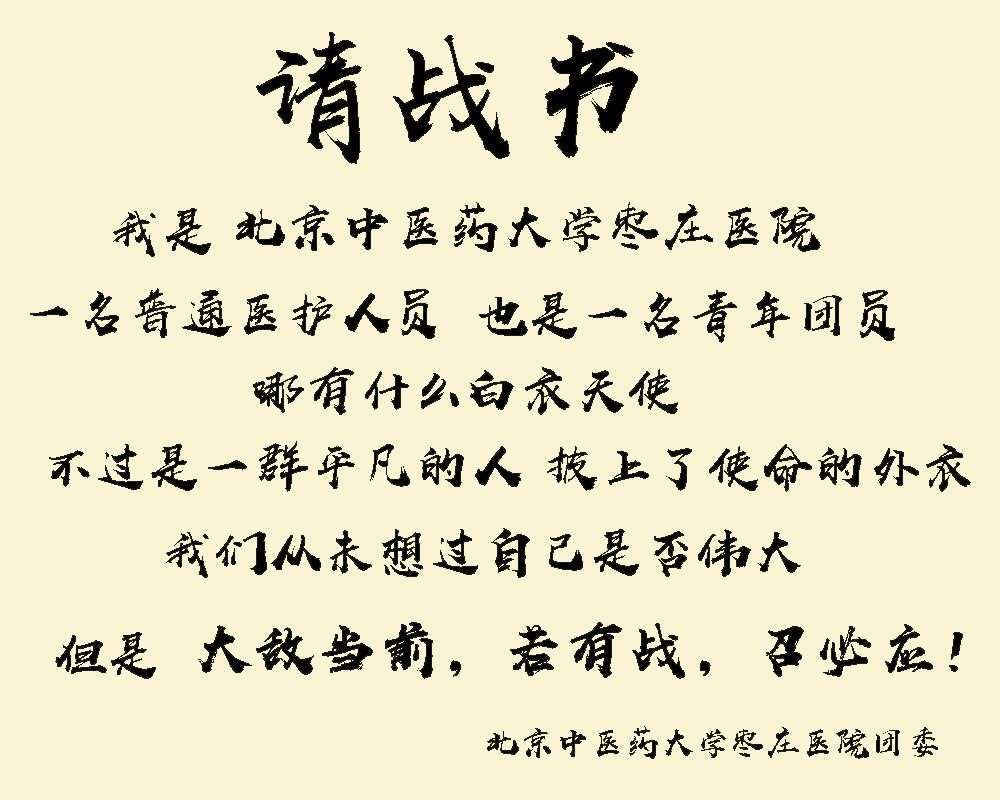 请战书
我是 北京中医药大学枣庄医院
一名普通医护人员 也是一名青年团员
哪有什么白衣天使
不过是一群平凡的人 披上了使命的外衣
我们从未想过自己是否伟大
但是 大敌当前，若有战，召必应！
北京中医药大学枣庄医院团委